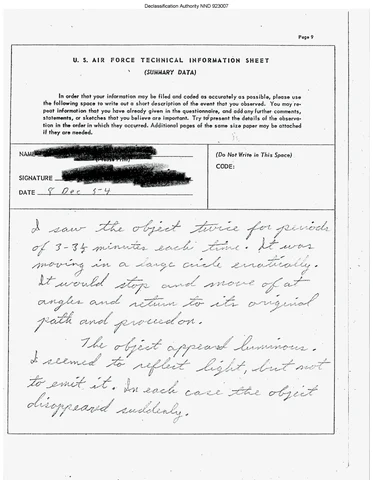 Declassification Authority NND 923007
Page 9
U. S. AIR FORCE TECHNICAL INFORMATION SHEET
(SUMMARY DATA)
In order that your information may be filed and coded as accurately as possible, please use
the following space to write out a short description of the event that you observed. You may re-
peat information that you have already given in the questionnaire, and add any further comments,
statements, or sketches that you believe are important. Try to present the details of the observa-
tion in the order in which they occurred. Additional pages of the same size paper may be attached
if they are needed.
NAME
(Do Not Write in This Space)
CODE:
SIGNATURE
DATE 8 Dec 54
I saw the object twice for periods
of 3-3½ minutes each time. It was
moving in a large circle erratically.
It would stop and move of at
angles and return to its original
path and proceed on.
The object appeard luminous.
I seemed to reflect light, but not
to emit it. In each case the object
disappeared suddenly.